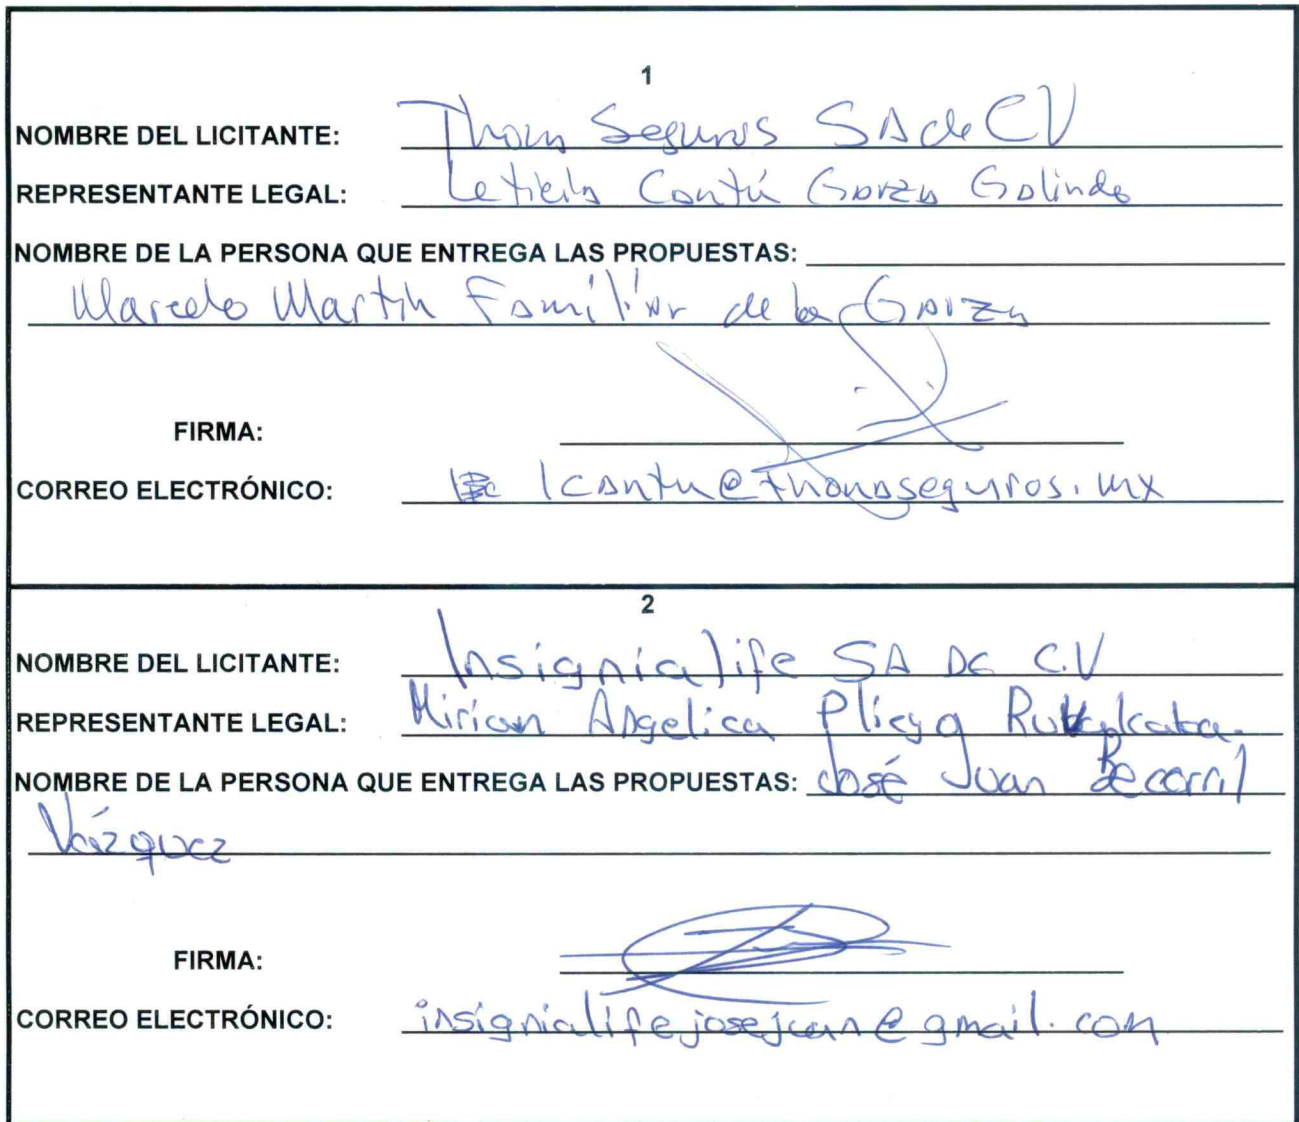 1
NOMBRE DEL LICITANTE: Thona Seguros SA de CV
REPRESENTANTE LEGAL: Leticia Cantú Garza Galindo
NOMBRE DE LA PERSONA QUE ENTREGA LAS PROPUESTAS:
Marcelo Martin Familiar de la Garza
FIRMA:
CORREO ELECTRÓNICO: lcantu@thonaseguros.mx
2
NOMBRE DEL LICITANTE: Insignialife SA DE C.V
REPRESENTANTE LEGAL: Mirian Angelica Pliego
NOMBRE DE LA PERSONA QUE ENTREGA LAS PROPUESTAS: José Juan Becerril
Vázquez
FIRMA:
CORREO ELECTRÓNICO: insignialifejosejuan@gmail.com